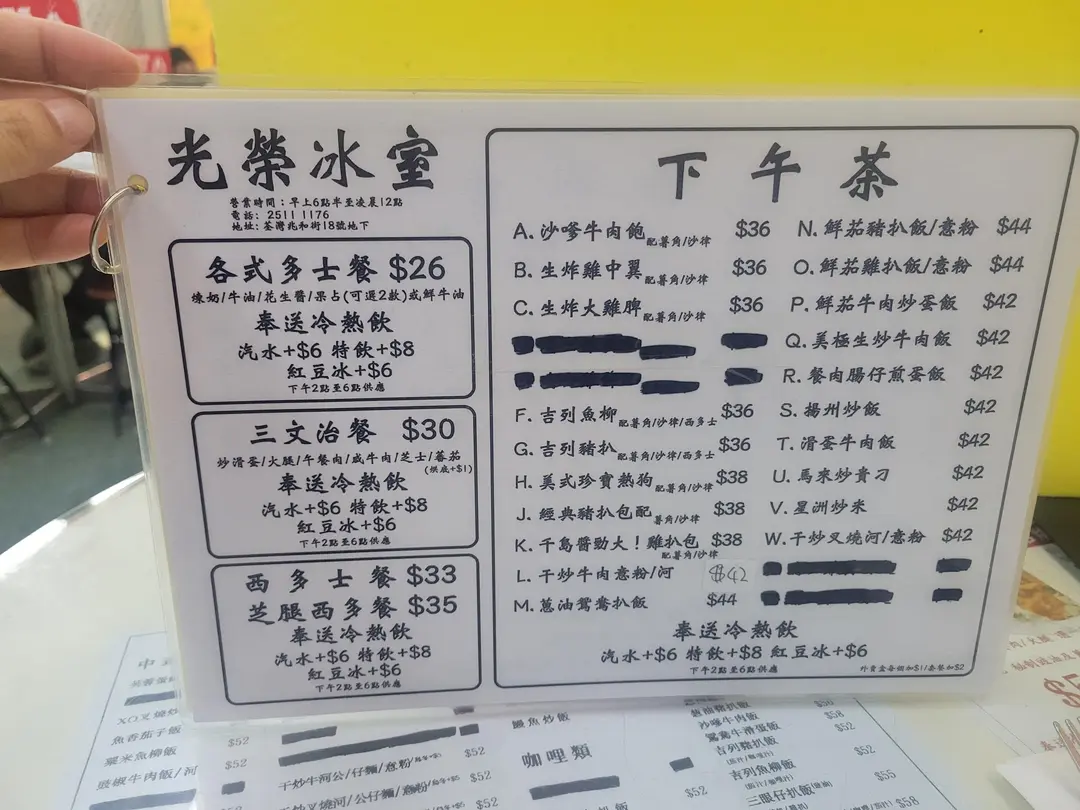 光榮冰室
營業時間：早上6點半至凌晨12點
電話: 2511 1176
地址: 荃灣兆和街18號地下
各式多士餐 $26
煉奶/牛油/花生醬/果占(可選2款)或鮮牛油
奉送冷熱飲
汽水+$6 特飲+$8
紅豆冰+$6
下午2點至6點供應
三文治餐 $30
炒滑蛋/火腿/午餐肉/咸牛肉/芝士/蕃茄
(烘底+$1)
奉送冷熱飲
汽水+$6 特飲+$8
紅豆冰+$6
下午2點至6點供應
西多士餐 $33
芝腿西多餐 $35
奉送冷熱飲
汽水+$6 特飲+$8
紅豆冰+$6
下午2點至6點供應
下午茶
A. 沙嗲牛肉飽配薯角/沙律 $36
B. 生炸雞中翼配薯角/沙律 $36
C. 生炸大雞脾配薯角/沙律 $36
F. 吉列魚柳配薯角/沙律/西多士 $36
G. 吉列豬扒配薯角/沙律/西多士 $36
H. 美式珍寶熱狗配薯角/沙律 $38
J. 經典豬扒包配薯角/沙律 $38
K. 千島醬勁大！雞扒包配薯角/沙律 $38
L. 干炒牛肉意粉/河 $42
M. 蔥油鴛鴦扒飯 $44
N. 鮮茄豬扒飯/意粉 $44
O. 鮮茄雞扒飯/意粉 $44
P. 鮮茄牛肉炒蛋飯 $42
Q. 美極生炒牛肉飯 $42
R. 餐肉腸仔煎蛋飯 $42
S. 揚州炒飯 $42
T. 滑蛋牛肉飯 $42
U. 馬來炒貴刁 $42
V. 星洲炒米 $42
W. 干炒叉燒河/意粉 $42
奉送冷熱飲
汽水+$6 特飲+$8 紅豆冰+$6
下午2點至6點供應
外賣盒每個加$1/套餐加$2
XO叉燒炒
魚香茄子飯 $52
粟米魚柳飯
豉椒牛肉飯/河 $52
干炒牛河公/仔麵/意粉 $52
干炒叉燒河/公仔麵/意粉 $52
鰻魚炒飯 $52
咖哩類
$52
豉油豬扒飯 $50
沙嗲牛肉飯 $58
鴛鴦牛滑蛋飯
吉列豬扒飯
吉列魚柳飯 $55
三眼仔扒飯 $58